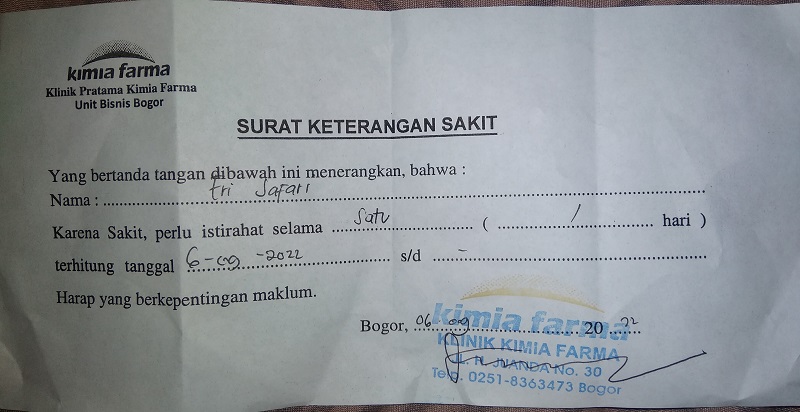 kimia farma
Klinik Pratama Kimia Farma
Unit Bisnis Bogor
SURAT KETERANGAN SAKIT
Yang bertanda tangan dibawah ini menerangkan, bahwa :
Nama : Eri Safari
Karena Sakit, perlu istirahat selama Satu ( 1 hari )
terhitung tanggal 6-09-2022 s/d -
Harap yang berkepentingan maklum.
Bogor, 06 09 2022
kimia farma
KLINIK KIMIA FARMA
JL. Ir. JUANDA No. 30
Telp. 0251-8363473 Bogor